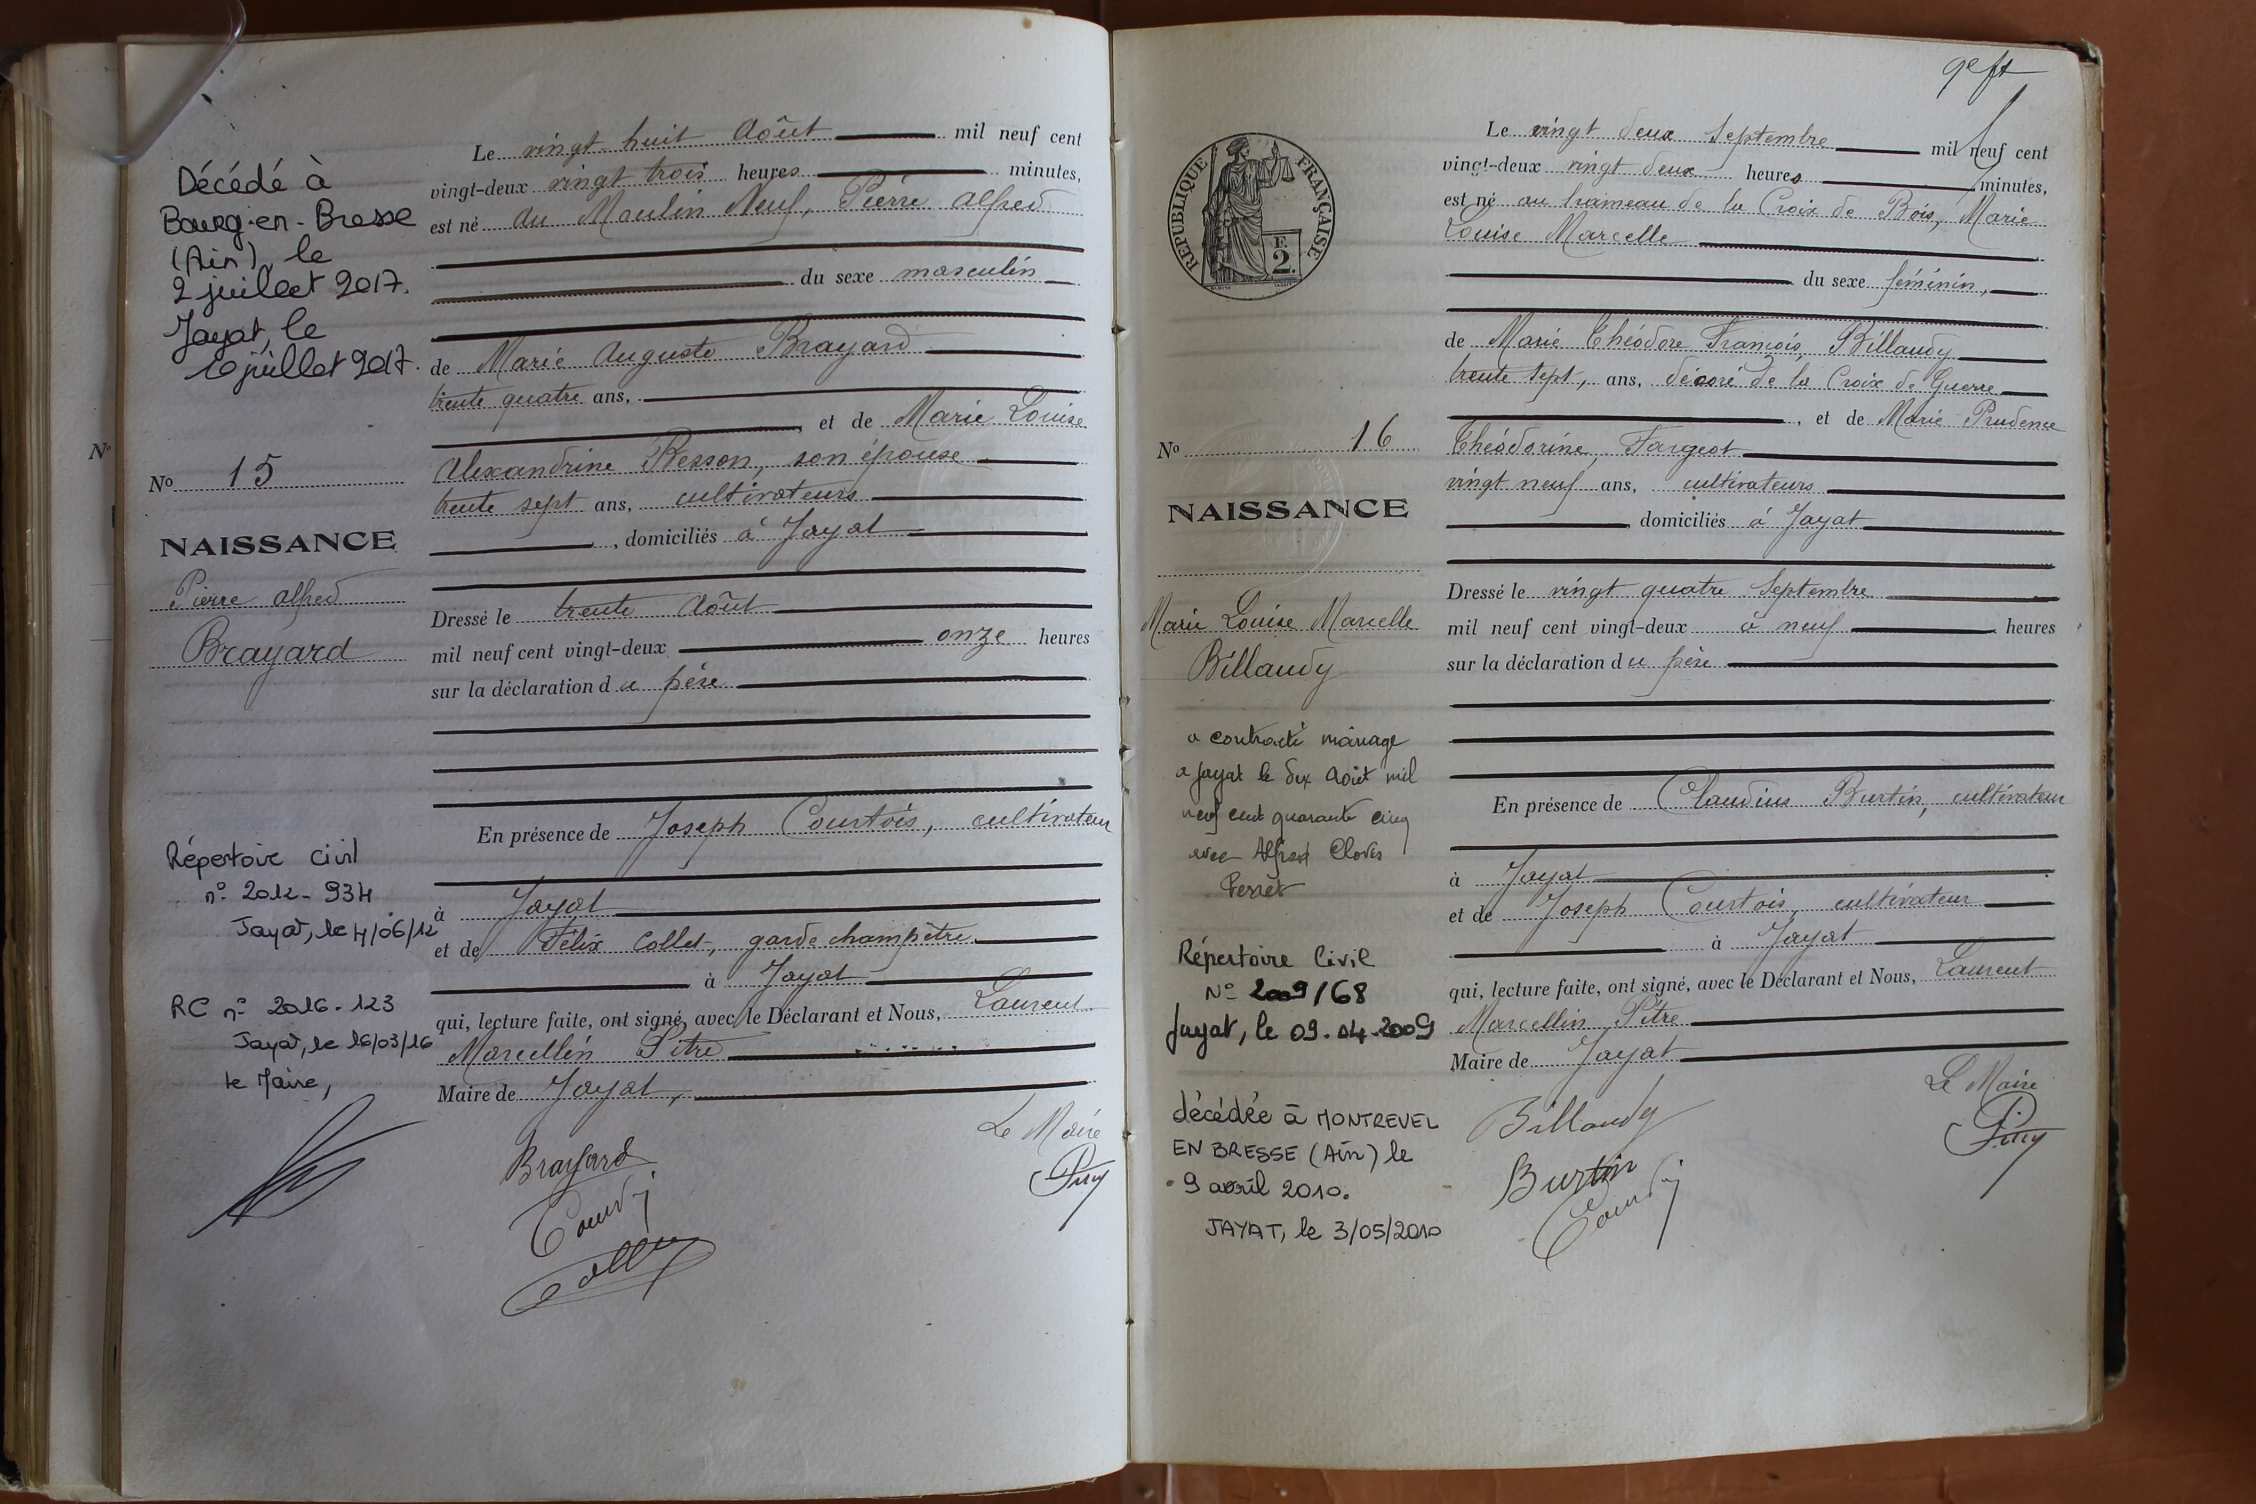 Décédé à
Bourg-en-Bresse
(Ain), le
2 juillet 2017.
Jayat, le
6 juillet 2017.
No 15
NAISSANCE
Pierre alfred
Brayard
Répertoire civil
n° 2012-934
Jayat, le 4/06/12
RC n° 2016-123
Jayat, le 16/03/16
le Maire,
Le vingt huit Août mil neuf cent
vingt-deux vingt trois heures minutes,
est né au Moulin Neuf, Pierre alfred
du sexe masculin
de Marie Auguste Brayard
trente quatre ans,
et de Marie Louise
Alexandrine Besson, son épouse
trente sept ans, cultivateurs
, domiciliés à Jayat
Dressé le trente Août
mil neuf cent vingt-deux onze heures
sur la déclaration du père
En présence de Joseph Courtois, cultivateur
à Jayat
et de Félix Collet, garde champêtre
à Jayat
qui, lecture faite, ont signé, avec le Déclarant et Nous, Laurent
Marcellin Pitre
Maire de Jayat,
Le Maire
Brayard
No
RÉPUBLIQUE FRANÇAISE
E.
2.
No 16
NAISSANCE
Marie Louise Marcelle
Billaudy
a contracté mariage
a Jayat le dix Août mil
neuf cent quarante cinq
avec Alfred Clovis
Perret
Répertoire Civil
N° 2009/68
Jayat, le 09-04-2009
décédée à MONTREVEL
EN BRESSE (Ain) le
9 avril 2010.
JAYAT, le 3/05/2010
Le vingt deux Septembre mil neuf cent
vingt-deux vingt deux heures minutes,
est né au hameau de la Croix de Bois, Marie
Louise Marcelle
du sexe féminin,
de Marie Théodore François Billaudy
trente sept, ans, décoré de la Croix de Guerre
, et de Marie Prudence
Théodorine Fargeot
vingt neuf ans, cultivateurs
domiciliés à Jayat
Dressé le vingt quatre Septembre
mil neuf cent vingt-deux à neuf heures
sur la déclaration du père
En présence de Claudius Burtin, cultivateur
à Jayat
et de Joseph Courtois, cultivateur
à Jayat
qui, lecture faite, ont signé, avec le Déclarant et Nous, Laurent
Marcellin Pitre
Maire de Jayat
Le Maire
Billaudy
Burtin